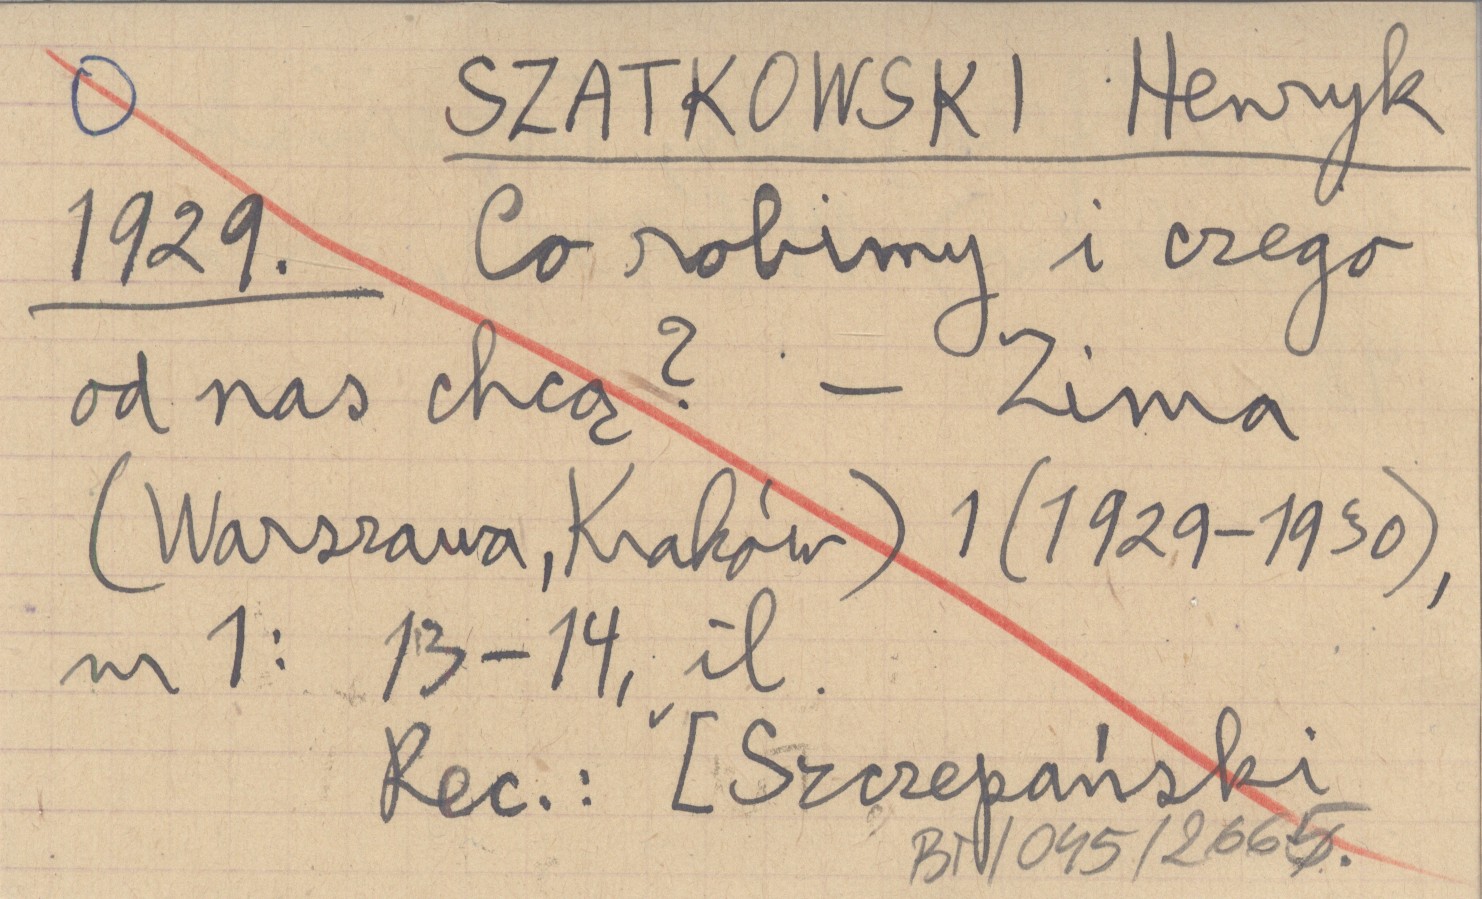 O SZATKOWSKI Henryk
1929. Co robimy i czego
od nas chcą? — Zima
(Warszawa, Kraków) 1 (1929–1930),
nr 1: 13–14, il.
Rec.: [Szczepański
BN/045/2665.